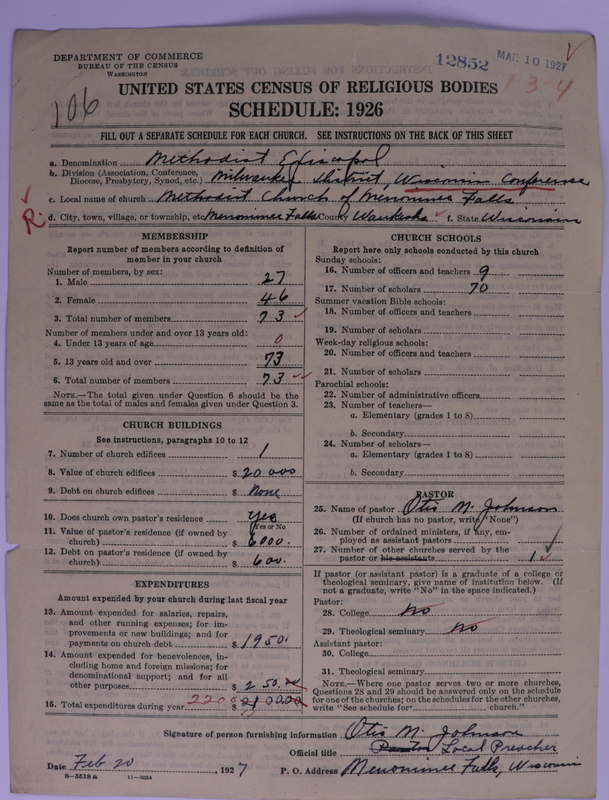 DEPARTMENT OF COMMERCE
BUREAU OF THE CENSUS
WASHINGTON
12852
MAR 10 1927
1-3-4
106
UNITED STATES CENSUS OF RELIGIOUS BODIES
SCHEDULE: 1926
FILL OUT A SEPARATE SCHEDULE FOR EACH CHURCH. SEE INSTRUCTIONS ON THE BACK OF THIS SHEET
a. Denomination Methodist Episcopal
b. Division (Association, Conference, Diocese, Presbytery, Synod, etc.) Milwaukee District, Wisconsin Conference
c. Local name of church Methodist Church of Menominee Falls
R. d. City, town, village, or township, etc Menominee Falls County Waukesha f. State Wisconsin
MEMBERSHIP
Report number of members according to definition of
member in your church
Number of members, by sex:
1. Male 27
2. Female 46
3. Total number of members 73
Number of members under and over 13 years old:
4. Under 13 years of age 0
5. 13 years old and over 73
6. Total number of members 73
NOTE.—The total given under Question 6 should be
same as the total of males and females given under Question 3.
CHURCH BUILDINGS
See instructions, paragraphs 10 to 12
7. Number of church edifices 1
8. Value of church edifices $ 20000
9. Debt on church edifices $ None
10. Does church own pastor's residence yes
(Yes or No
11. Value of pastor's residence (if owned by
church) $ 6000.
12. Debt on pastor's residence (if owned by
church) $ 600.
EXPENDITURES
Amount expended by your church during last fiscal year
13. Amount expended for salaries, repairs,
and other running expenses; for im-
provements or new buildings; and for
payments on church debt $ 1950.
14. Amount expended for benevolences, in-
cluding home and foreign missions; for
denominational support; and for all
other purposes $ 250.
15. Total expenditures during year 2200
CHURCH SCHOOLS
Report here only schools conducted by this church
Sunday schools:
16. Number of officers and teachers 9
17. Number of scholars 70
Summer vacation Bible schools:
18. Number of officers and teachers
19. Number of scholars
Week-day religious schools:
20. Number of officers and teachers
21. Number of scholars
Parochial schools:
22. Number of administrative officers
23. Number of teachers—
a. Elementary (grades 1 to 8)
b. Secondary
24. Number of scholars—
a. Elementary (grades 1 to 8)
b. Secondary
PASTOR
25. Name of pastor Otis M. Johnson
(If church has no pastor, write "None")
26. Number of ordained ministers, if any, em-
ployed as assistant pastors
27. Number of other churches served by the
pastor or his assistants 1
If pastor (or assistant pastor) is a graduate of a college or
theological seminary, give name of institution below. (If
not a graduate, write "No" in the space indicated.)
Pastor:
28. College No
29. Theological seminary No
Assistant pastor:
30. College
31. Theological seminary
NOTE.—Where one pastor serves two or more churches,
Questions 28 and 29 should be answered only on the schedule
for one of the churches; on the schedules for the other churches,
write "See schedule for church."
Signature of person furnishing information Otis M. Johnson
Official title Pastor Local Preacher
Date Feb 20, 1927 P. O. Address Menominee Falls, Wisconsin
8-5518a 11-9084